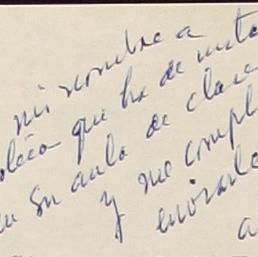 mi nombre a
que ha de
en su aula de clase
y me compl
enviarle
a